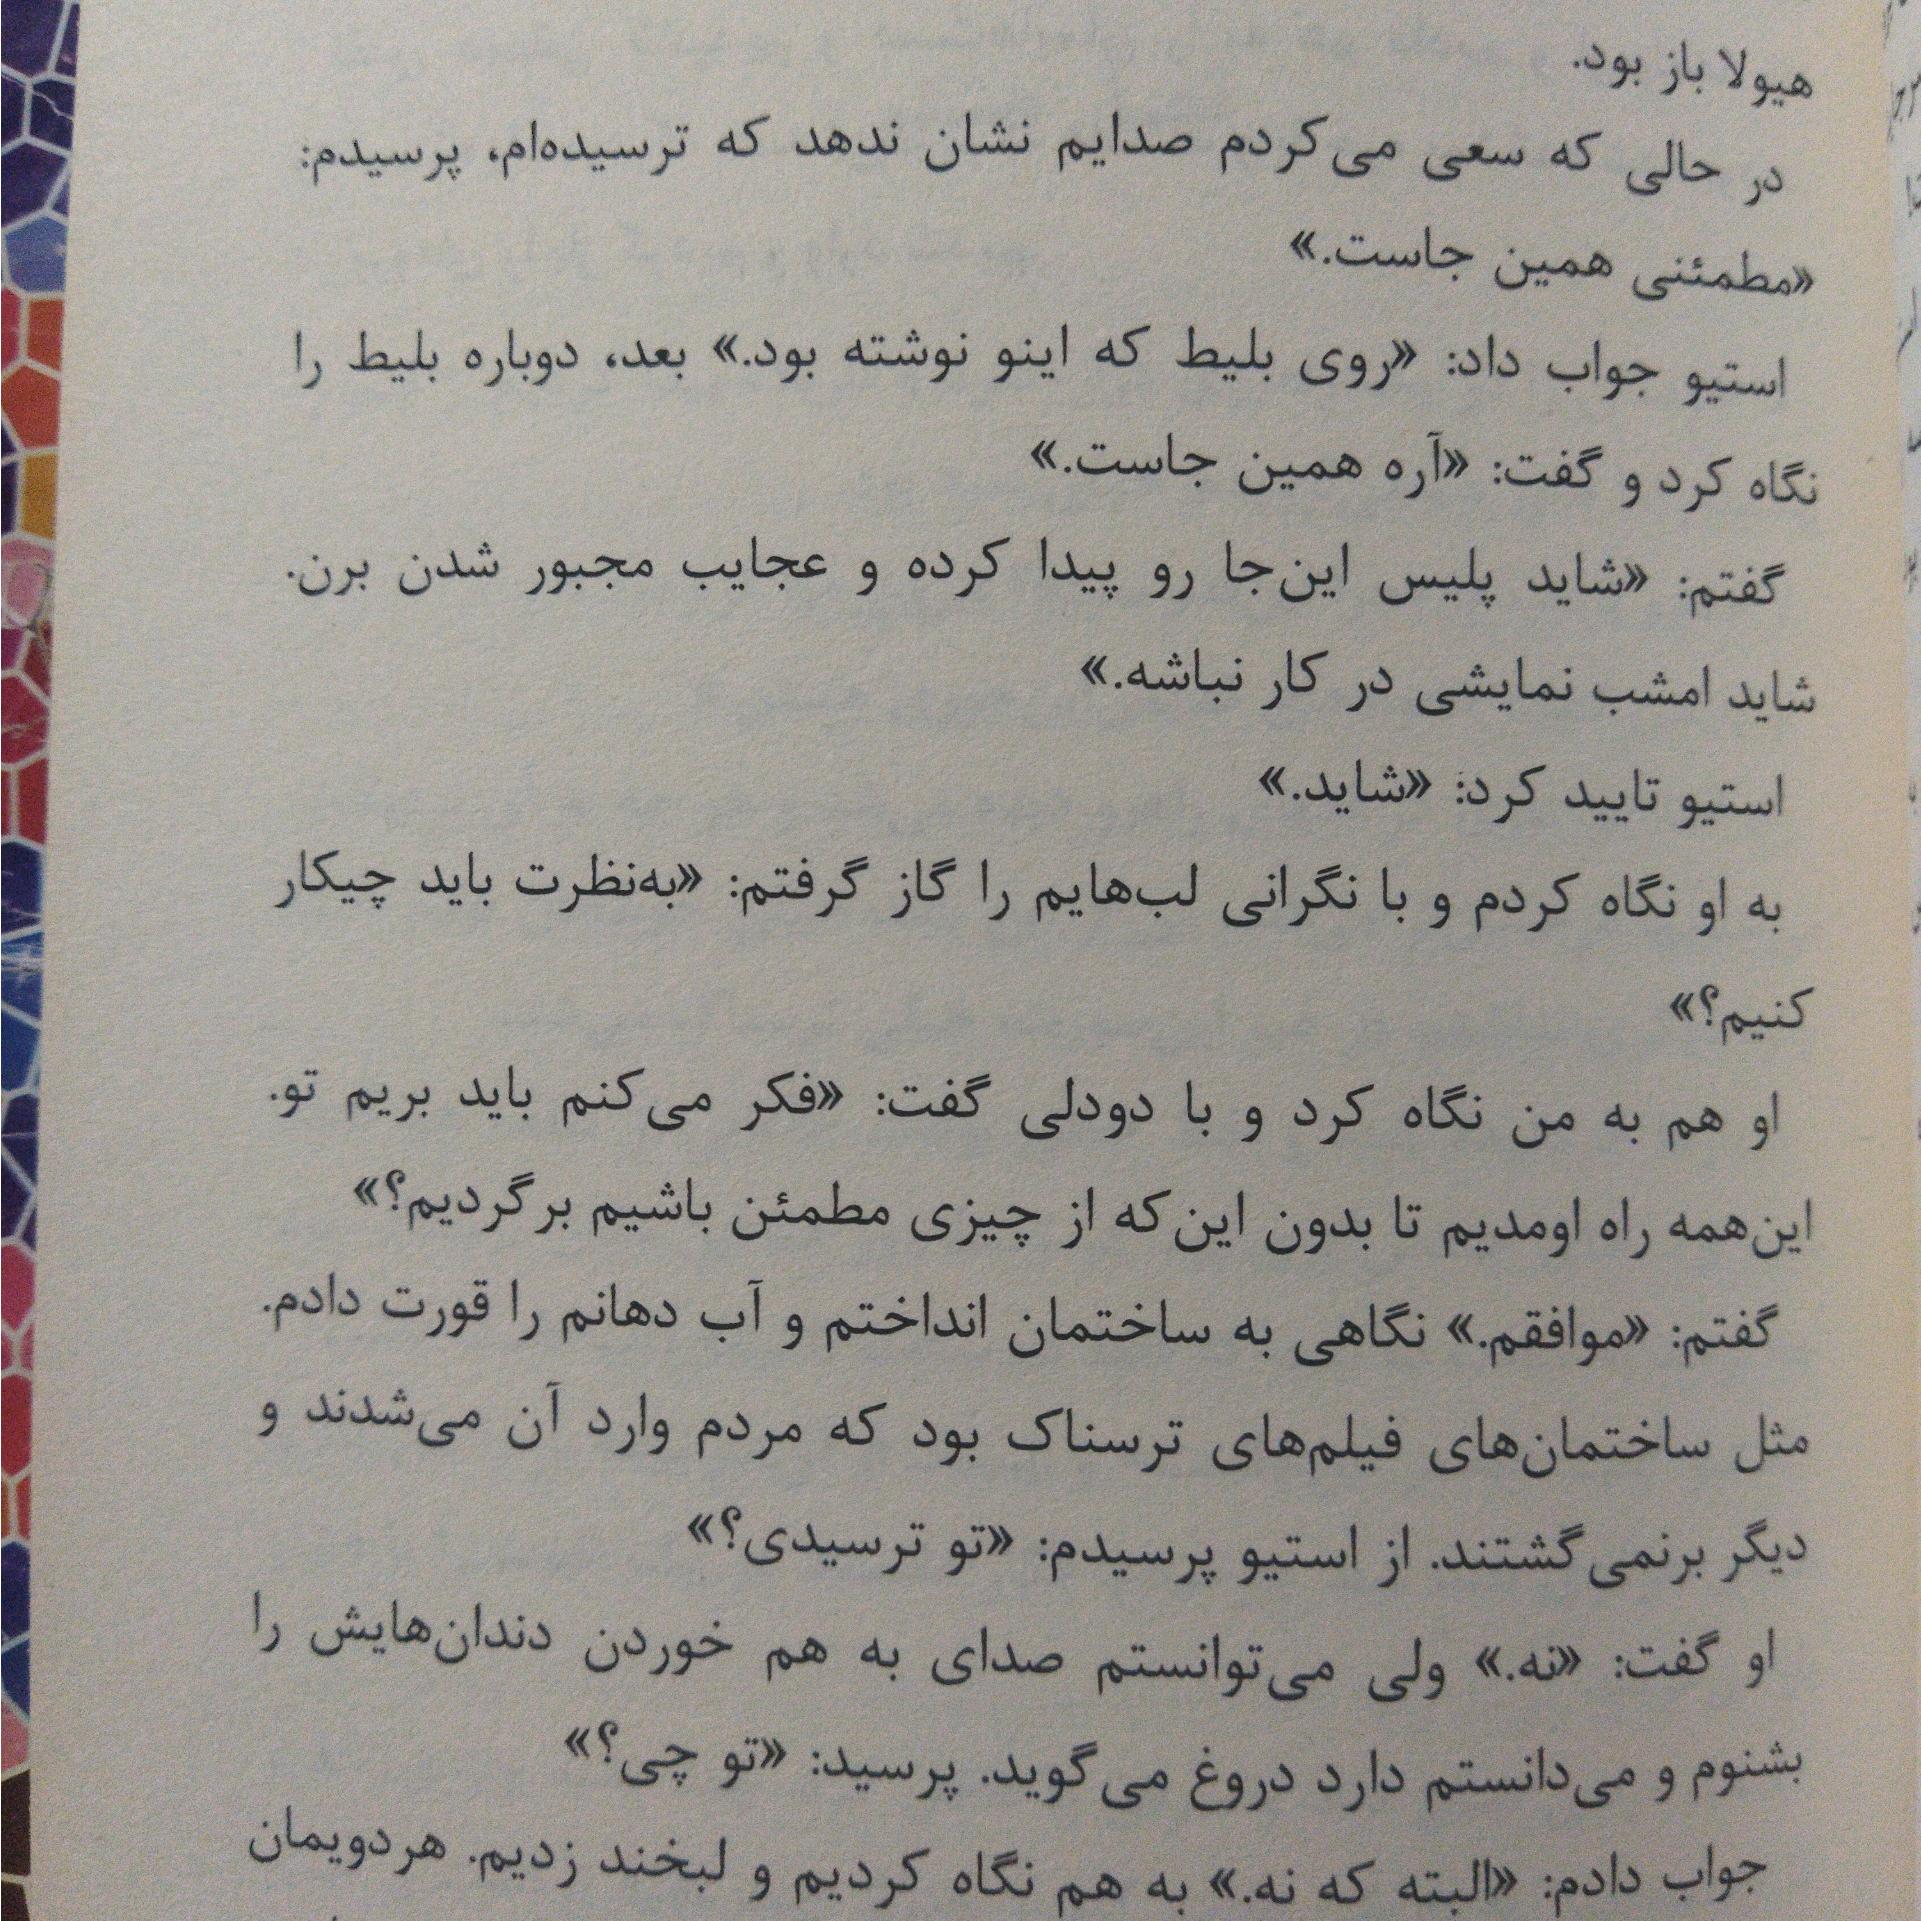 هیولا باز بود.
در حالی که سعی می‌کردم صدایم نشان ندهد که ترسیده‌ام، پرسیدم:
«مطمئنی همین جاست.»
استیو جواب داد: «روی بلیط که اینو نوشته بود.» بعد، دوباره بلیط را
نگاه کرد و گفت: «آره همین جاست.»
گفتم: «شاید پلیس این‌جا رو پیدا کرده و عجایب مجبور شدن برن.
شاید امشب نمایشی در کار نباشه.»
استیو تایید کرد: «شاید.»
به او نگاه کردم و با نگرانی لب‌هایم را گاز گرفتم: «به‌نظرت باید چیکار
کنیم؟»
او هم به من نگاه کرد و با دودلی گفت: «فکر می‌کنم باید بریم تو.
این‌همه راه اومدیم تا بدون این‌که از چیزی مطمئن باشیم برگردیم؟»
گفتم: «موافقم.» نگاهی به ساختمان انداختم و آب دهانم را قورت دادم.
مثل ساختمان‌های فیلم‌های ترسناک بود که مردم وارد آن می‌شدند و
دیگر برنمی‌گشتند. از استیو پرسیدم: «تو ترسیدی؟»
او گفت: «نه.» ولی می‌توانستم صدای به هم خوردن دندان‌هایش را
بشنوم و می‌دانستم دارد دروغ می‌گوید. پرسید: «تو چی؟»
جواب دادم: «البته که نه.» به هم نگاه کردیم و لبخند زدیم. هردویمان